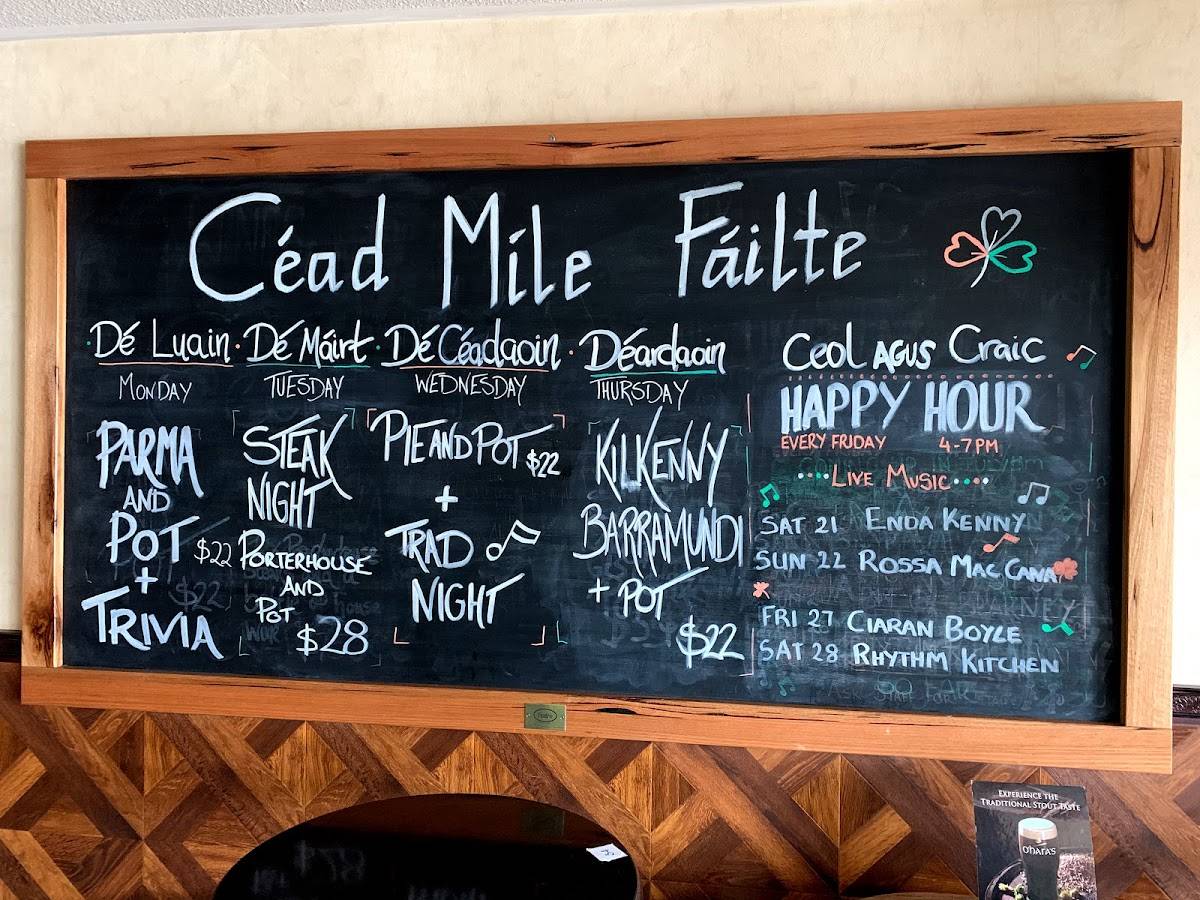 Céad Míle Fáilte
Dé Luain
MONDAY
PARMA
AND
POT $22
+
TRIVIA
Dé Máirt
TUESDAY
STEAK
NIGHT
PORTERHOUSE
AND
POT
$28
Dé Céadaoin
WEDNESDAY
PIE AND POT $22
+
TRAD
NIGHT
Déardaoin
THURSDAY
KILKENNY
BARRAMUNDI
+ POT
$22
Ceol AGUS Craic
HAPPY HOUR
EVERY FRIDAY 4-7PM
LIVE MUSIC
SAT 21 ENDA KENNY
SUN 22 ROSSA MAC CANA
FRI 27 CIARAN BOYLE
SAT 28 RHYTHM KITCHEN
EXPERIENCE THE
TRADITIONAL STOUT TASTE
O'HARA'S